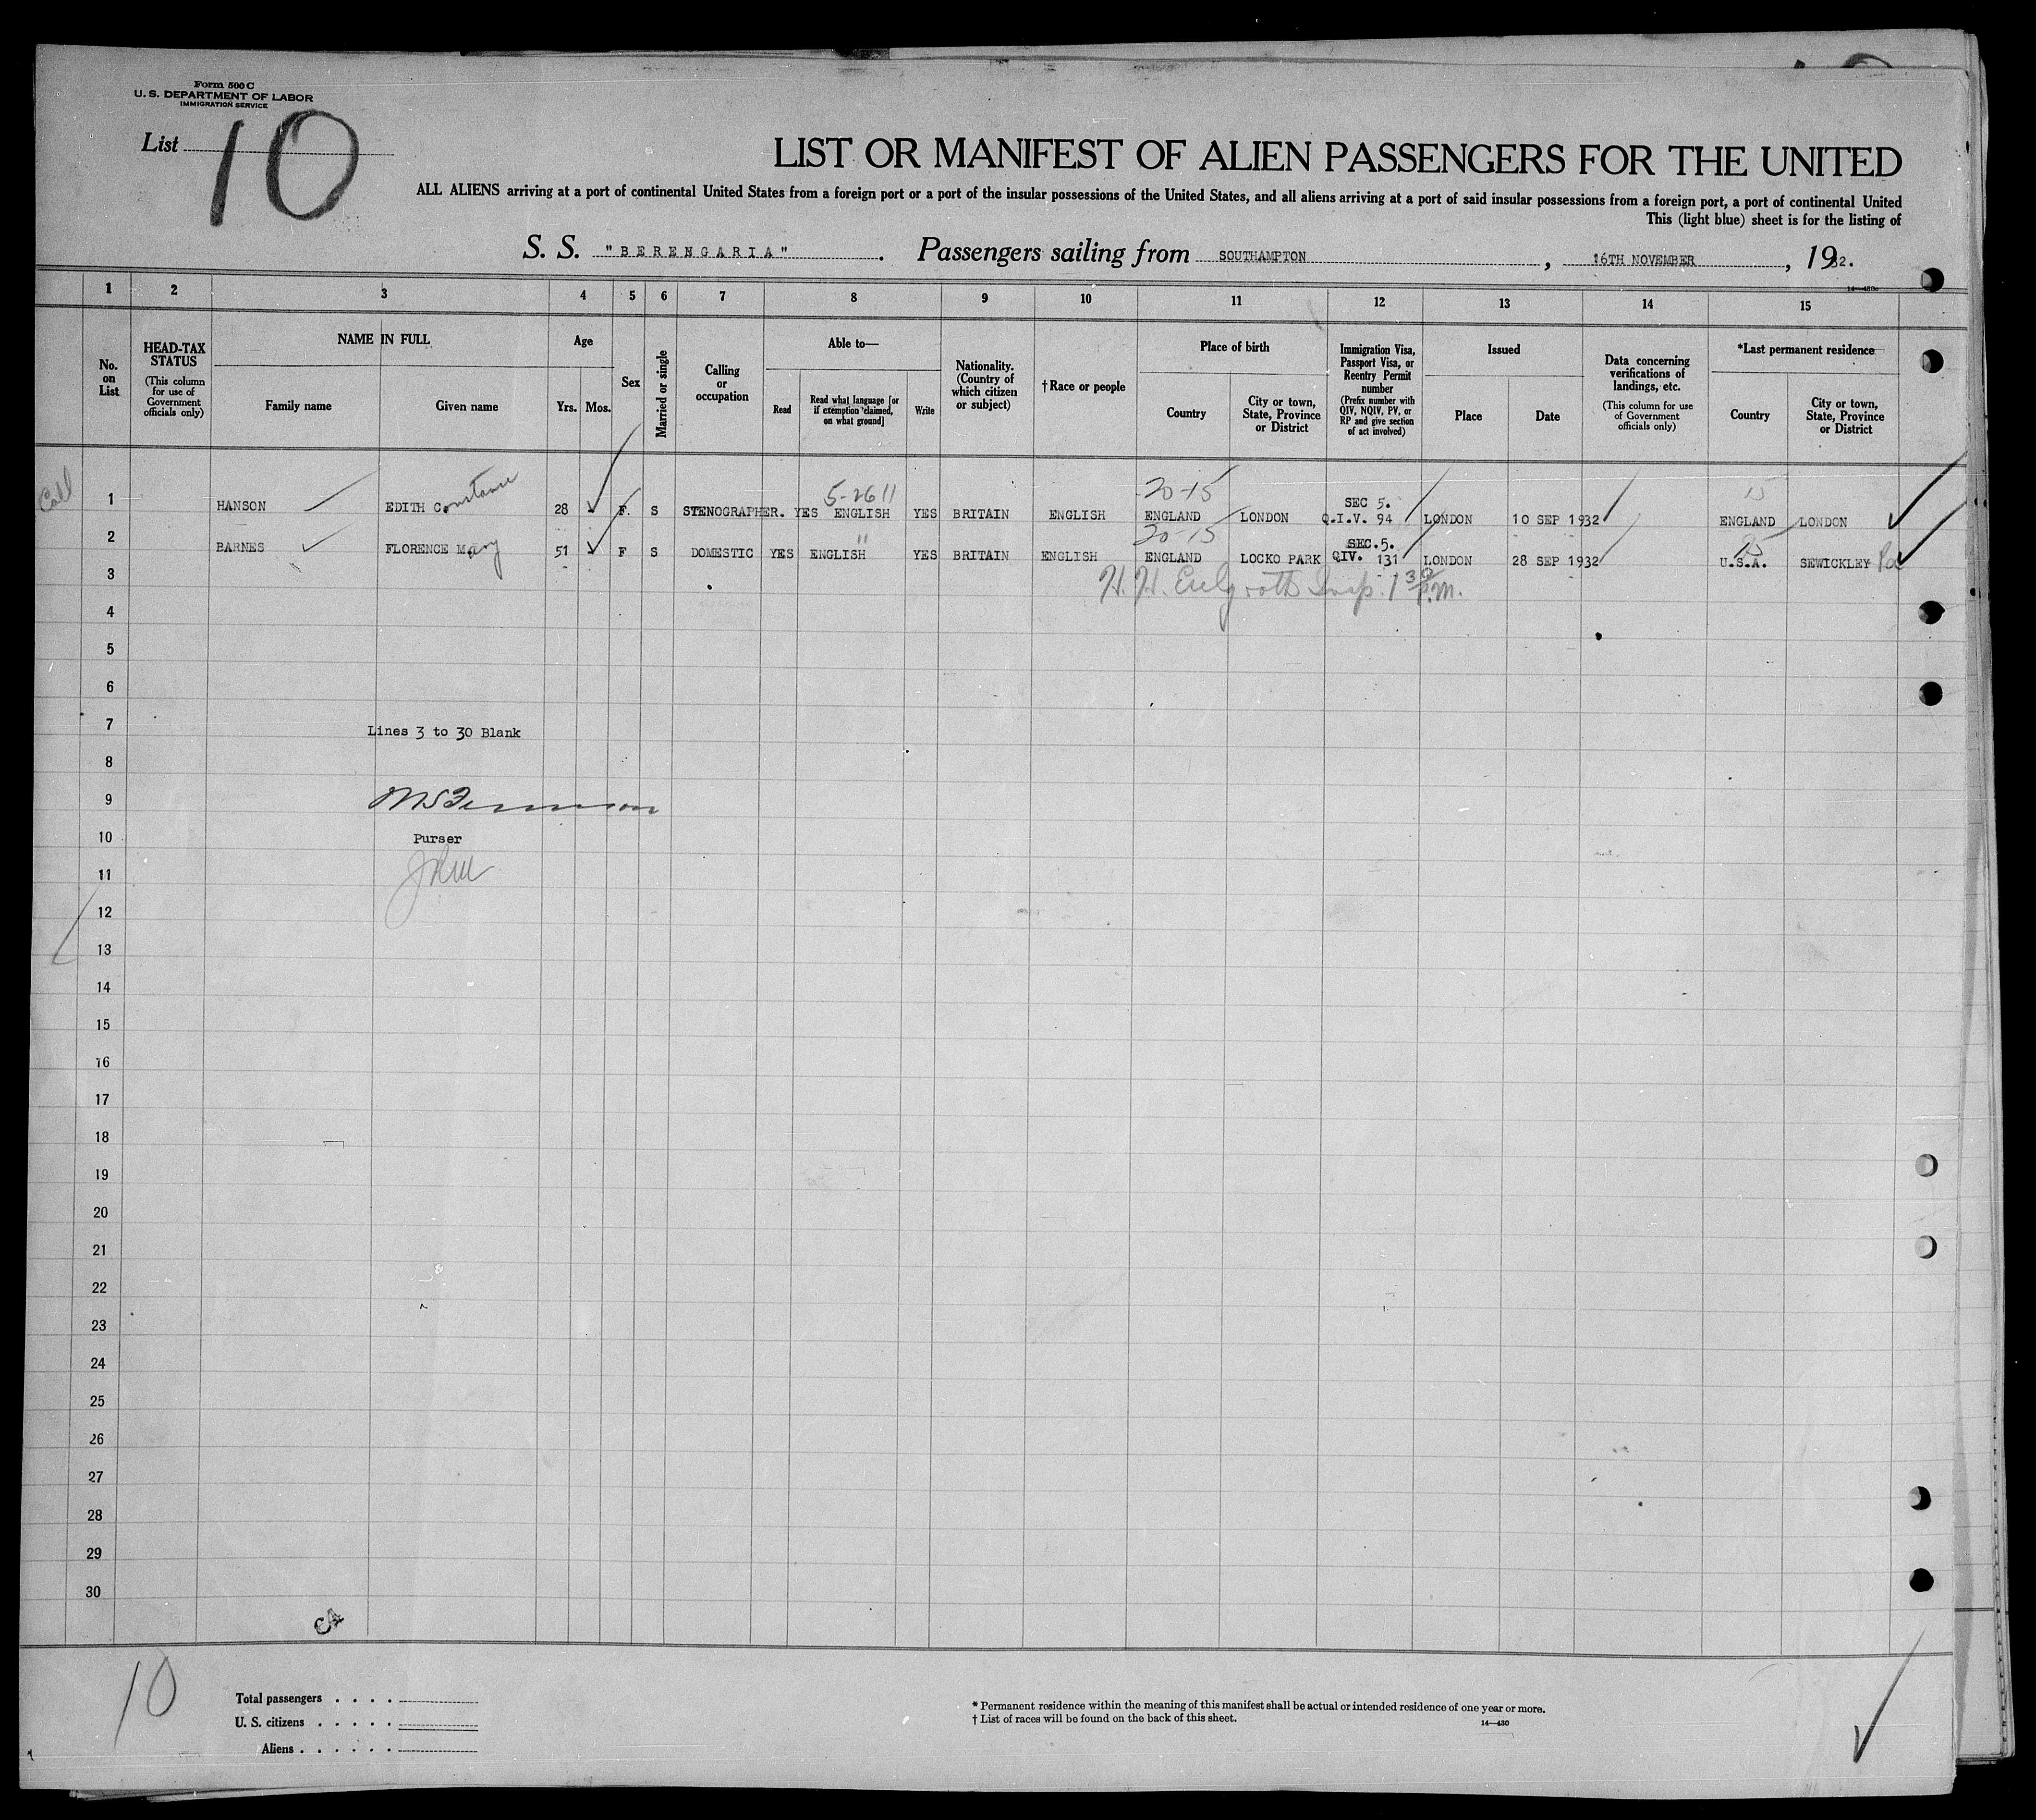 Form 500 C
U. S. DEPARTMENT OF LABOR
IMMIGRATION SERVICE
List 10
LIST OR MANIFEST OF ALIEN PASSENGERS FOR THE UNITED
ALL ALIENS arriving at a port of continental United States from a foreign port or a port of the insular possessions of the United States, and all aliens arriving at a port of said insular possessions from a foreign port, a port of continental United
This (light blue) sheet is for the listing of
S. S. "BERENGARIA". Passengers sailing from SOUTHAMPTON, 16TH NOVEMBER, 1932.
1 2 3 4 5 6 7 8 9 10 11 12 13 14 15
No. on List
HEAD-TAX STATUS (This column for use of Government officials only)
NAME IN FULL
Family name Given name
Age
Yrs. Mos.
Sex
Married or single
Calling or occupation
Able to—
Read
Read what language [or if exemption claimed, on what ground]
Write
Nationality. (Country of which citizen or subject)
† Race or people
Place of birth
Country
City or town, State, Province or District
Immigration Visa, Passport Visa, or Reentry Permit number (Prefix number with QIV, NQIV, PV, or RP and give section of act involved)
Issued
Place Date
Data concerning verifications of landings, etc. (This column for use of Government officials only)
*Last permanent residence
Country
City or town, State, Province or District
5-26 11 20-15 SEC 5. 15
1 HANSON EDITH Constance 28 F S STENOGRAPHER. YES ENGLISH YES BRITAIN ENGLISH ENGLAND LONDON Q.I.V. 94 LONDON 10 SEP 1932 ENGLAND LONDON
11 20-15 SEC.5. 15
2 BARNES FLORENCE Mary 51 F S DOMESTIC YES ENGLISH YES BRITAIN ENGLISH ENGLAND LOCKO PARK QIV. 131 LONDON 28 SEP 1932 U.S.A. SEWICKLEY Pa
3 H. H. Insp. 1 30 P.M.
4
5
6
7 Lines 3 to 30 Blank
8
9
10 Purser
11
12
13
14
15
16
17
18
19
20
21
22
23
24
25
26
27
28
29
30
CA
10
Total passengers . . . .
U. S. citizens . . . . .
Aliens . . . . . .
* Permanent residence within the meaning of this manifest shall be actual or intended residence of one year or more.
† List of races will be found on the back of this sheet.
14—430